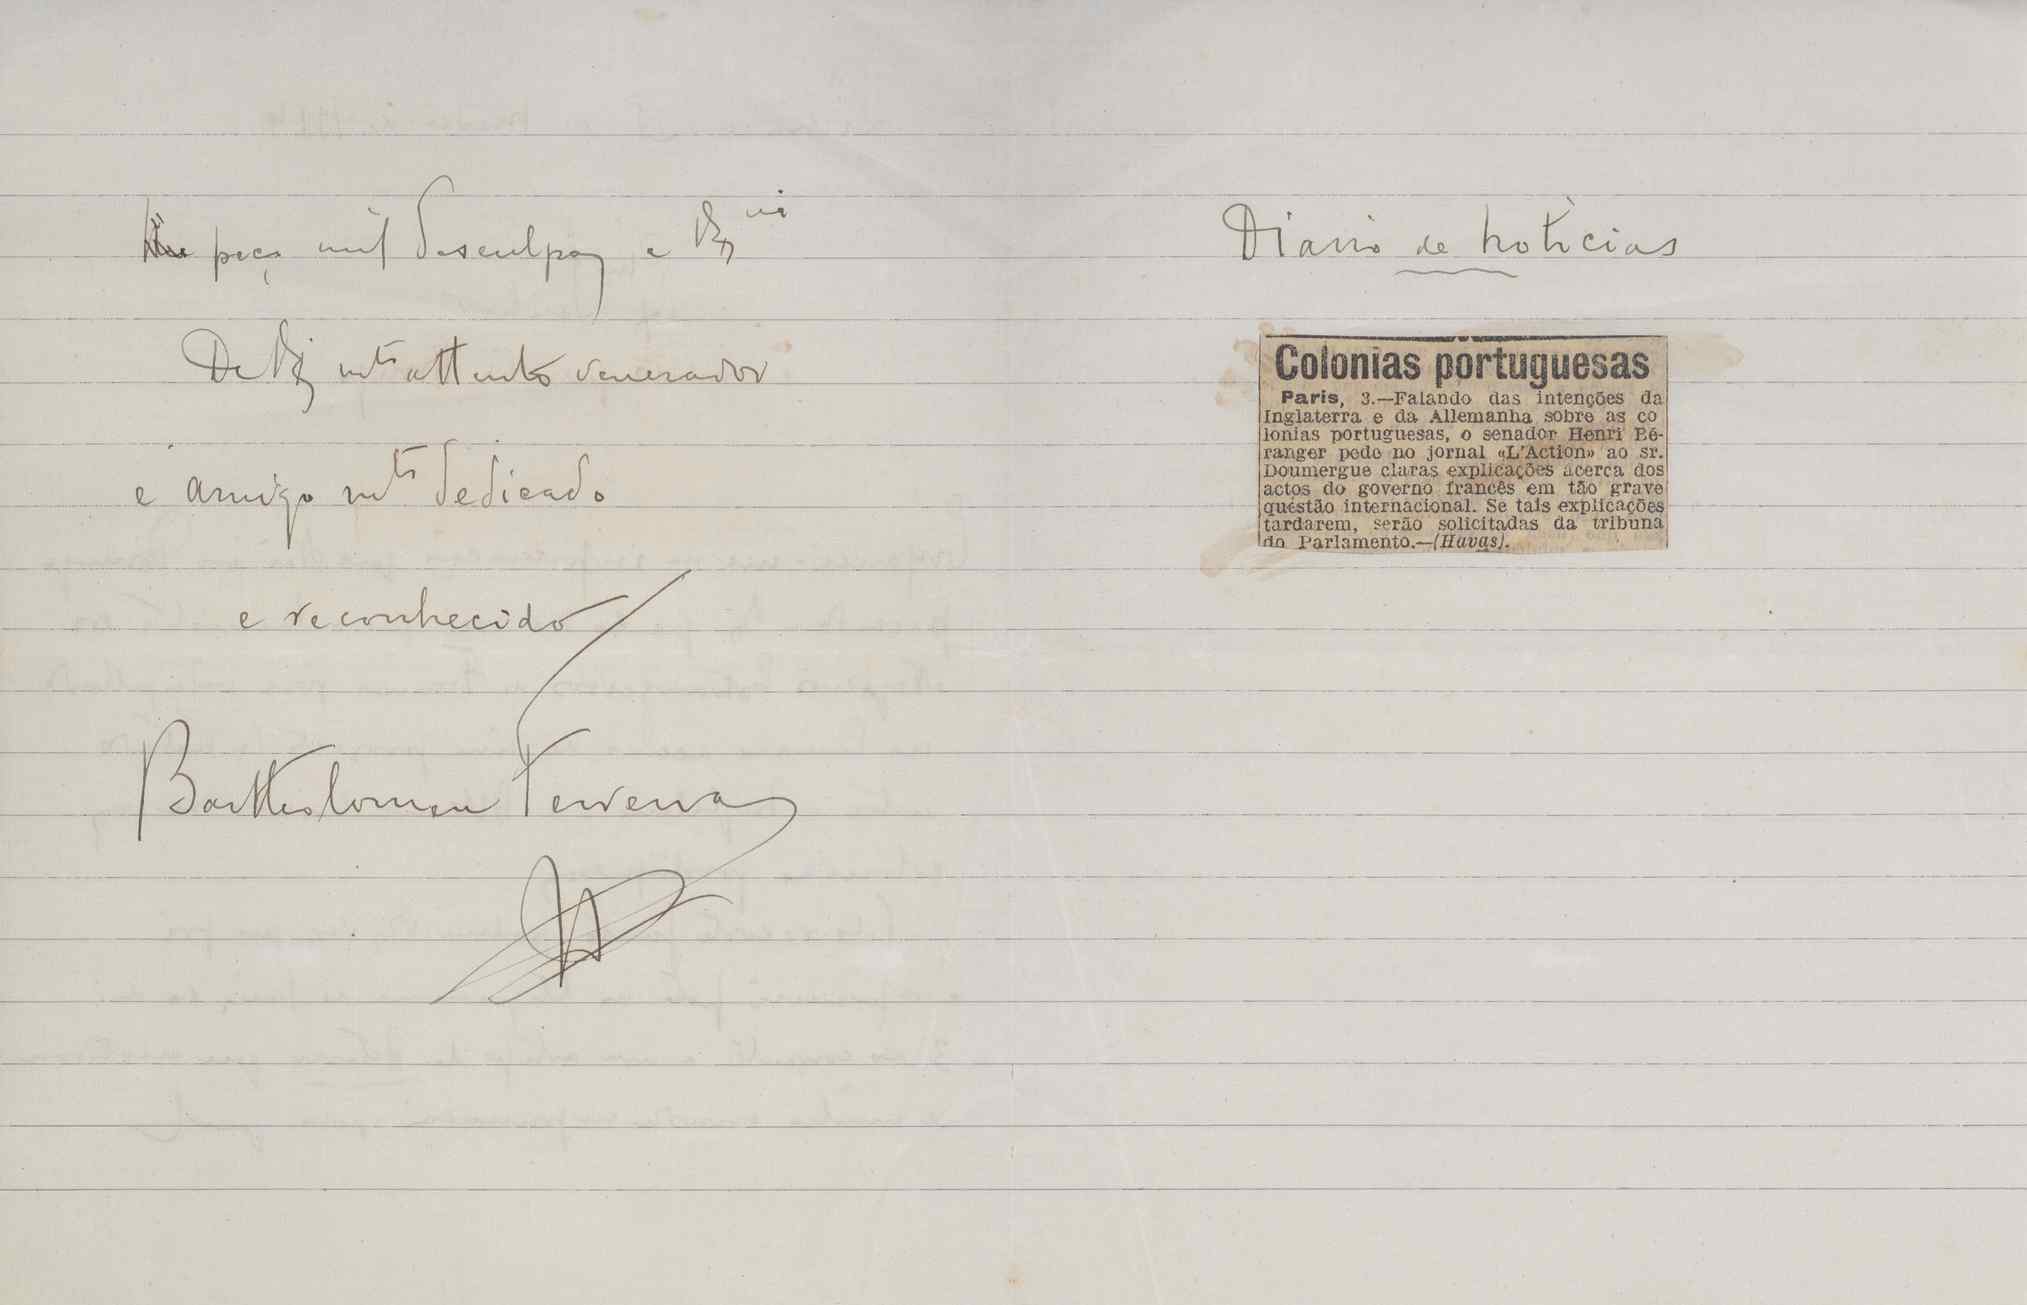 peço mil desculpas e
De attento venerador
e amigo mto dedicado
e reconhecido
Bartholomeu Ferreira
Diario de noticias
Colonias portuguesas
Paris, 3.—Falando das intenções da
Inglaterra e da Allemanha sobre as co
lonias portuguesas, o senador Henri Bé-
ranger pede no jornal «L'Action» ao sr.
Doumergue claras explicações ácerca dos
actos do governo francês em tão grave
questão internacional. Se tais explicações
tardarem, serão solicitadas da tribuna
do Parlamento.—(Havas).